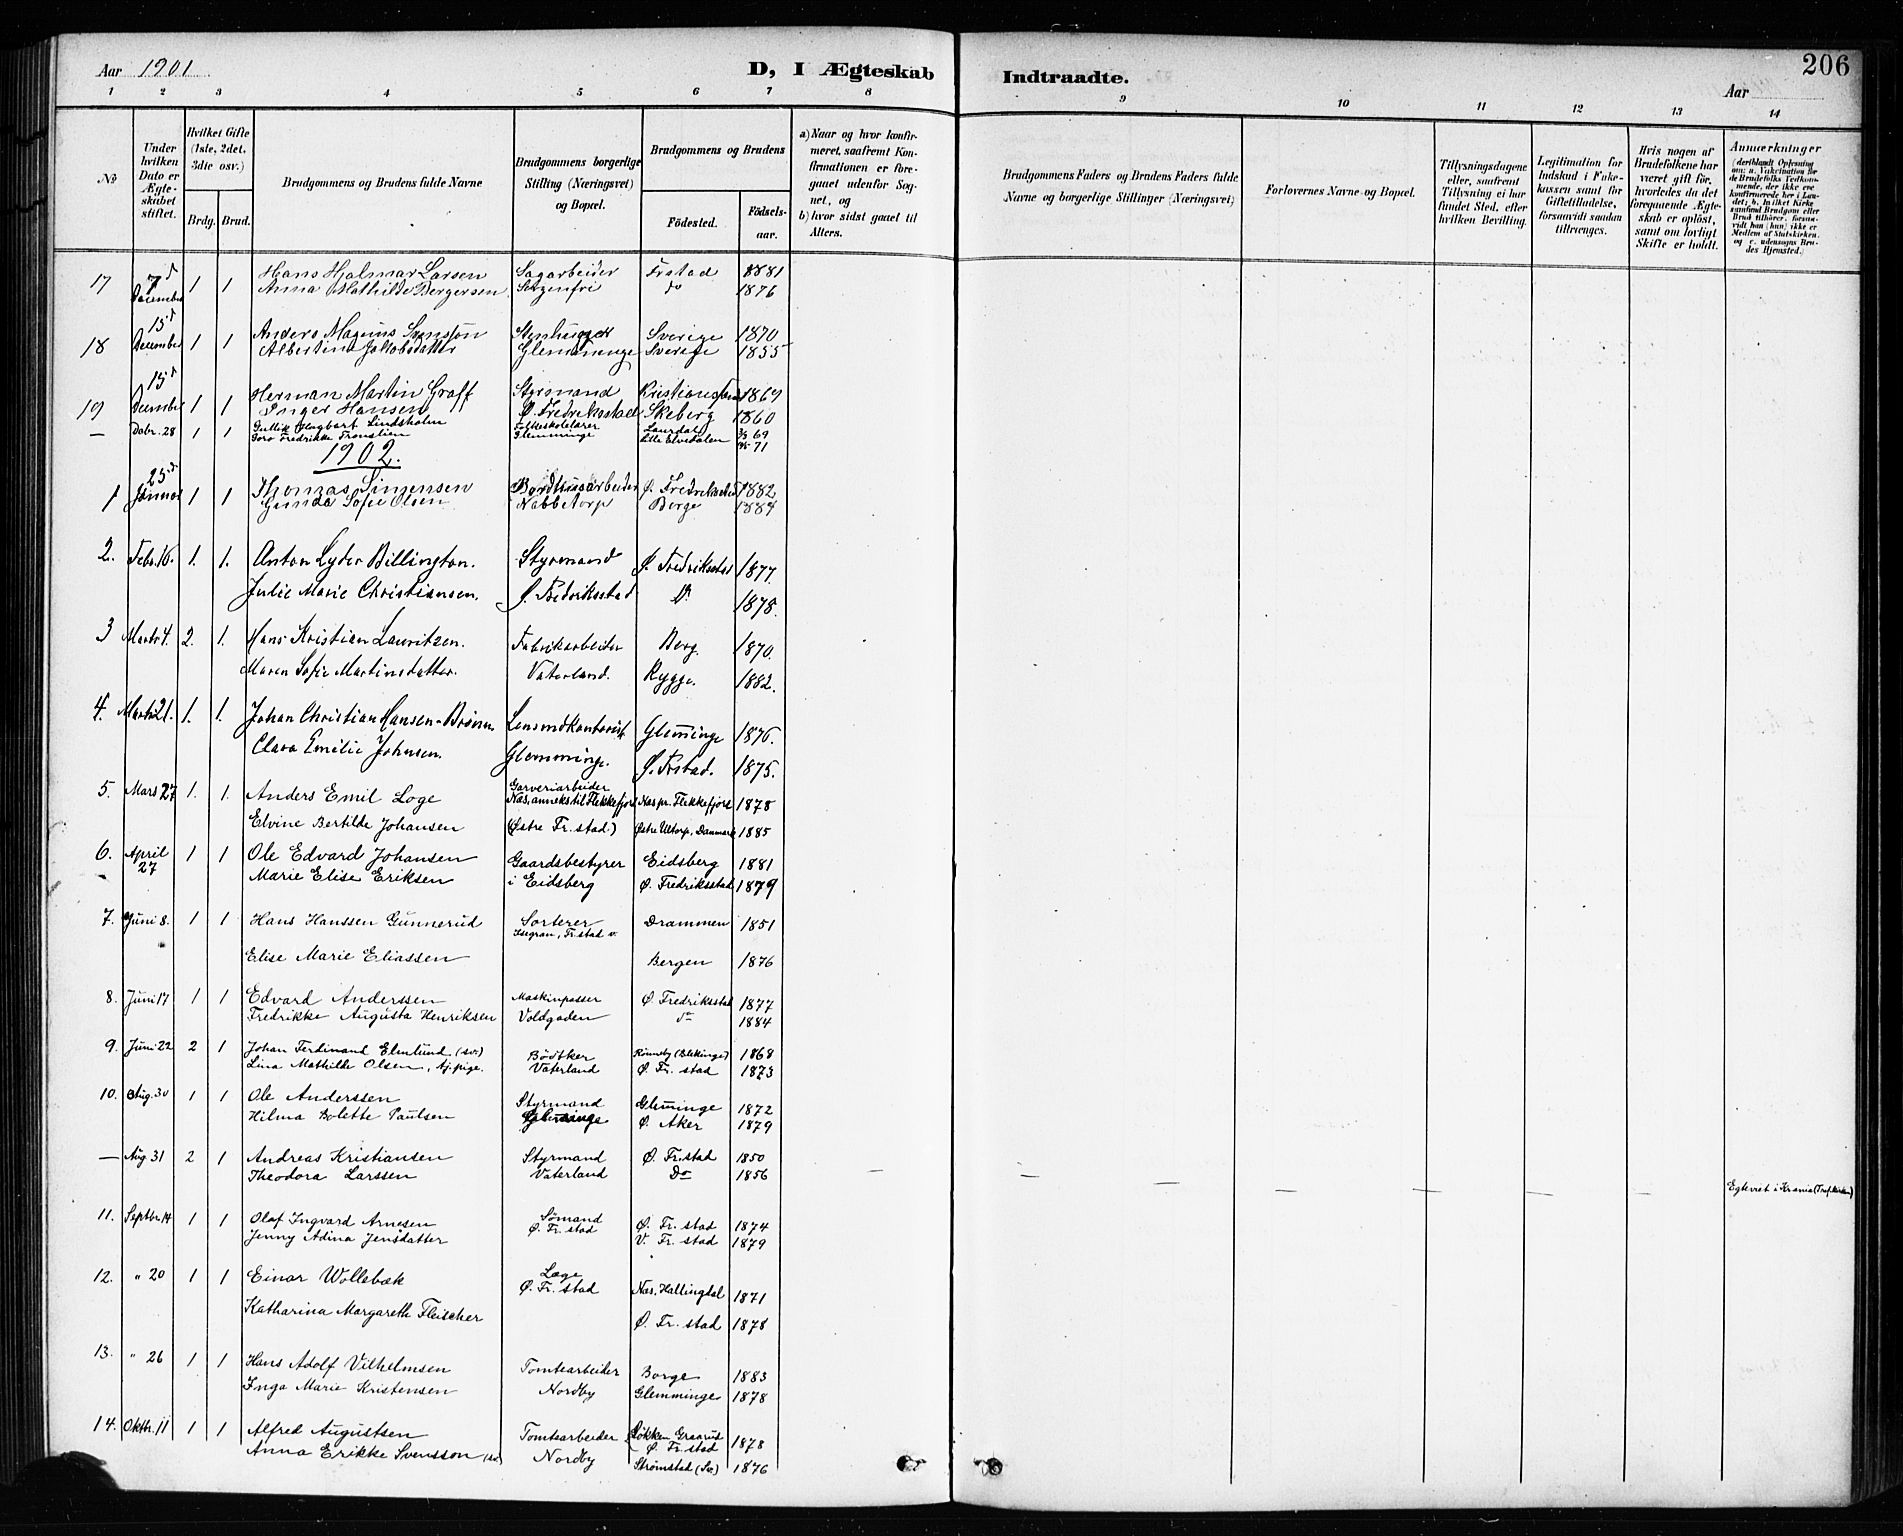 Aar 1901
D, I Ægteskab
Indtraadte.
206
Aar
1 2 3 4 5 6 7 8 9 10 11 12 13 14
No
Under hvilken Dato er Ægteskabet stiftet.
Hvilket Gifte (1ste, 2det, 3die osv.)
Brdg. Brud.
Brudgommens og Brudens fulde Navne
Brudgommens borgerlige Stilling (Næringsvei) og Bopæl.
Brudgommens og Brudens
Fødested.
Fødselsaar.
a) Naar og hvor konfirmeret, saafremt Konfirmationen er foregaaet udenfor Sognet, og
b) hvor sidst gaaet til Alters.
Brudgommens Faders og Brudens Faders fulde Navne og borgerlige Stillinger (Næringsvei)
Forlovernes Navne og Bopæl.
Tillysningsdagene eller, saafremt Tillysning ei har fundet Sted, efter hvilken Bevilling.
Legitimation for Indskud i Enkekassen samt for Giftetilladelse, forsaavidt saadan tiltrænges.
Hvis nogen af Brudefolkene har været gift før, hvorledes da det foregaaende Ægteskab er opløst, samt om lovligt Skifte er holdt.
Anmærkninger
17 7d December 1 1 Hans Hjalmar Larsen Sagarbeider Frstad 1881
Anna Mathilde Bergersen do 1876
18 15d December 1 1 Anders Magnus Svensson Stenhugger Sverige 1870
Albertina Jakobsdatter Glemminge Sverige 1855
19 15d December 1 1 Herman Martin Graff Styrmand 1869
Inger Hansen Ø. Fredriksstad Skeberg 1860
— Dcbr. 28 1 1 Gullik Hagbart Lindsholm Folkeskolelærer Laurdal 69
Goro Fredrikke Tronslien Glemminge Lille Elvedalen 71
1902.
1 25d Januar 1 1 Thomas Bordhusarbeider Ø. Fredriksstad 1882
Gunda Sofie Olsen Nabbetorp Borge 1884
2. Febr. 16. 1. 1. Anton Lyder Billington. Styrmand Ø. Fredriksstad 1877.
Julie Marie Christiansen. Ø. Fredriksstad Do 1878.
3 Marts 4. 2. 1. Hans Kristian Lauritzen. Fabrikarbeider Berg. 1870.
Maren Sofie Martinsdatter. Vaterland. Rygge. 1882.
4. Marts 21. 1. 1. Johan Christian Hansen-Brønn Lensmdkontorist Glemminge 1876.
Clara Emilie Johnsen. Glemminge. Ø. Frstad. 1875.
5. Mars 27 1. 1. Anders Emil Loge Garveriarbeider Næs pr. Flekkefjord 1878
Næs, anneks til Flekkefjord
Elvine Bertilde Johansen (Østre Fr.stad.) Østre Ultorp, Danmark 1885
6. April 27 1 1 Ole Edvard Johansen Gaardsbestyrer Eidsberg 1881
Marie Elise Eriksen i Eidsberg Ø. Fredriksstad 1879
7. Juni 8. 1 1 Hans Hanssen Gunnerud Sorterer Drammen 1851
Isegran, Fr.stad v.
Elise Marie Eliassen Bergen 1876
8. Juni 17 1 1 Edvard Anderssen Maskinpasser Ø. Fredriksstad 1877
Fredrikke Augusta Henriksen Voldgaden do 1884
9. Juni 22 2 1 Johan Ferdinand Elmlund (sv.) Bødtker Rönneby (Blekinge) 1868
Lina Mathilde Olsen, tj.pige. Vaterland Ø. Fr. stad 1873
10. Aug. 30 1 1 Ole Anderssen Styrmand Glemminge 1872
Hilma Bolette Paulsen Glemminge Ø. Aker 1879
— Aug. 31 2 1 Andreas Kristiansen Styrmand Ø. Fr.stad 1850
Theodora Larssen Vaterland Do 1856
— — — — — — Egteviet i Krania (Tref.kirken)
11. Septbr. 14 1 1 Olaf Ingvard Arnesen Sømand Ø. Fr. stad 1874
Jenny Adina Jensdatter Ø. Fr. stad V. Fr. stad 1879
12. " 20 1 1 Einar Wollebæk Læge Næs, Hallingdal 1871
Ø. Fr. stad
Katharina Margareth Fleischer Ø. Fr. stad 1878
13. " 26 1 1 Hans Adolf Vilhelmsen Tomtearbeider Borge 1883
Inga Marie Kristensen Nordby Glemminge 1878
14. Oktbr. 11 1 1 Alfred Augustsen Tomtearbeider Løkken Graarud Ø. Fr. stad 1878
Anna Erikke Svensson (sv.) Nordby Strømstad (Sv.) 1876